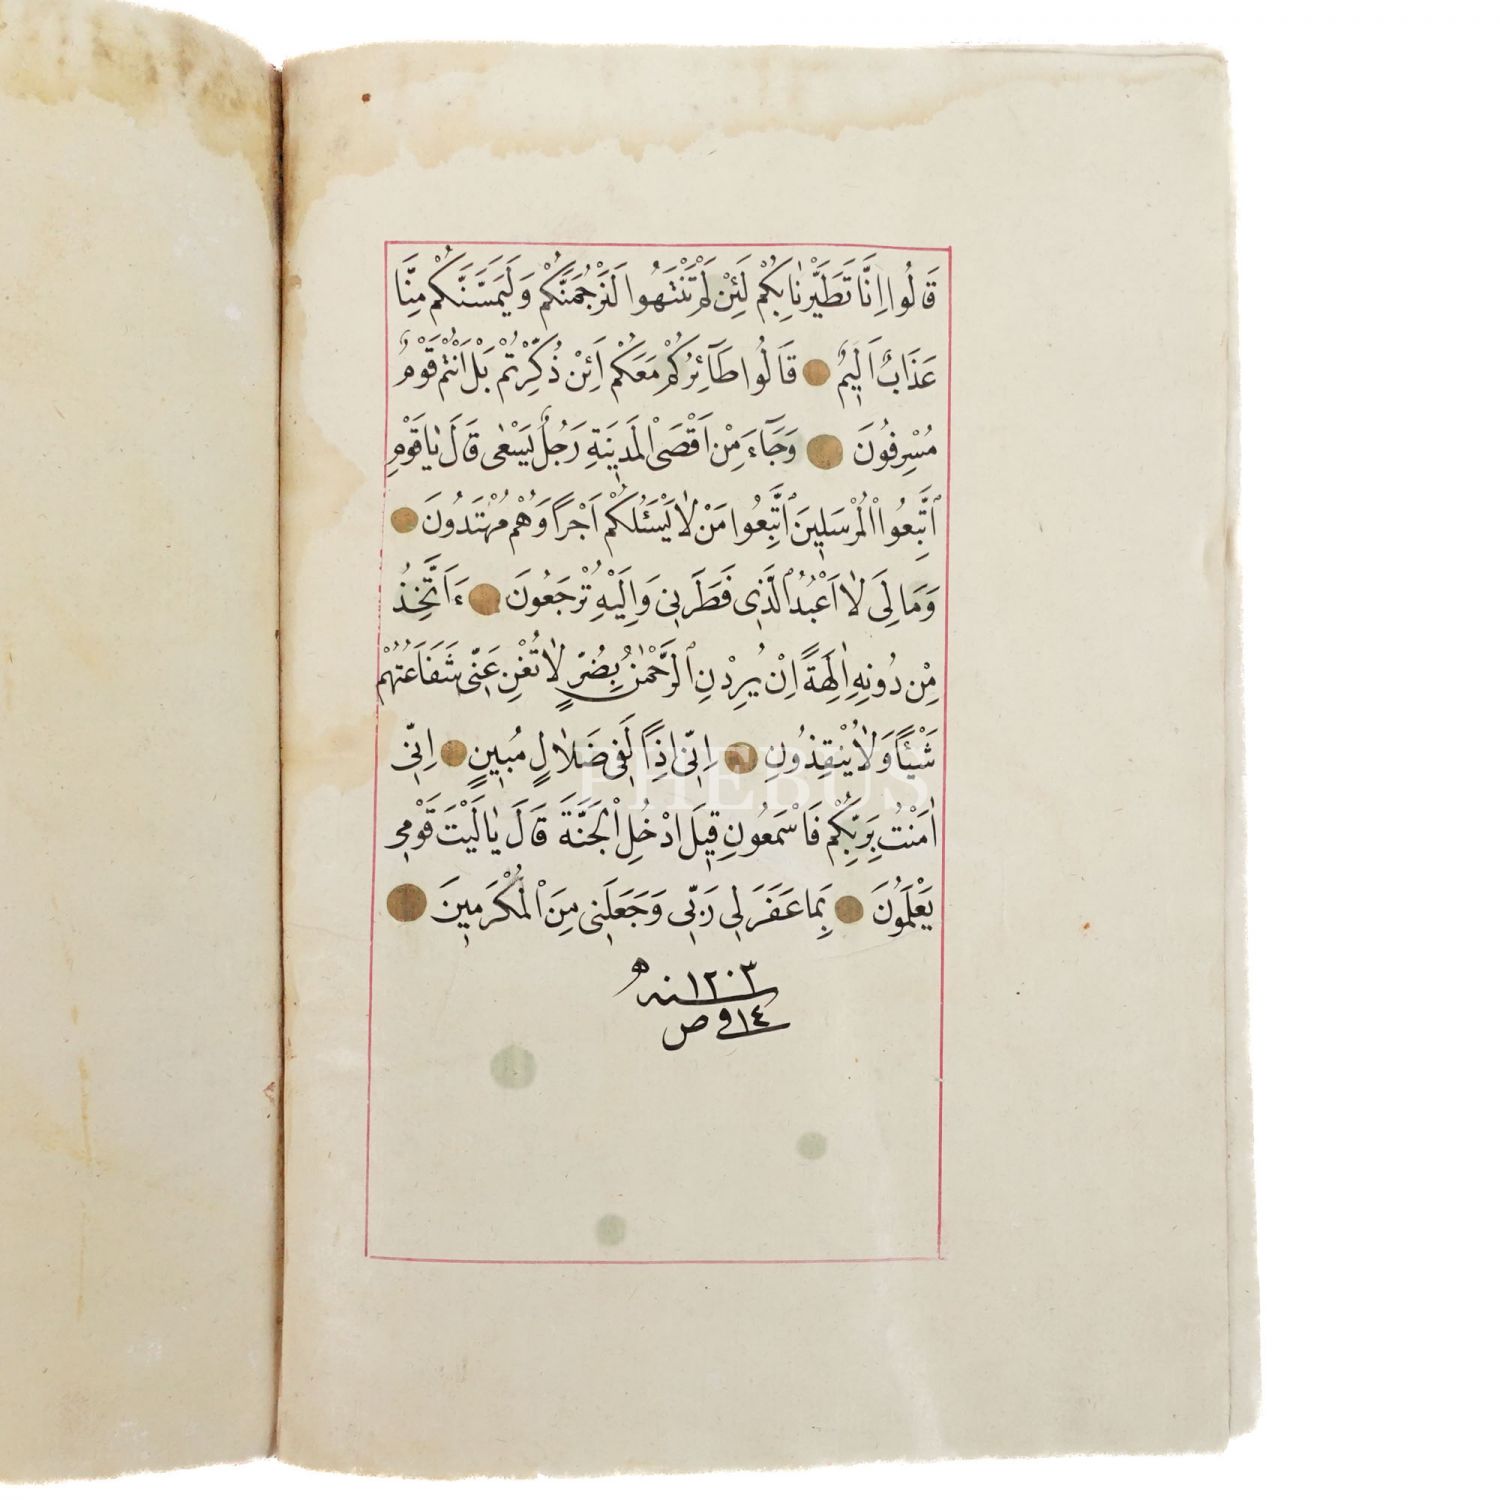 قَالُوا اِنَّا تَطَيَّرْنَا بِكُمْ لَئِنْ لَمْ تَنْتَهُوا لَنَرْجُمَنَّكُمْ وَلَيَمَسَّنَّكُمْ مِنَّا
عَذَابٌ اَلٖيمٌ قَالُوا طَٓائِرُكُمْ مَعَكُمْ اَئِنْ ذُكِّرْتُمْ بَلْ اَنْتُمْ قَوْمٌ
مُسْرِفُونَ وَجَٓاءَ مِنْ اَقْصَى الْمَدٖينَةِ رَجُلٌ يَسْعٰى قَالَ يَاقَوْمِ
اتَّبِعُوا الْمُرْسَلٖينَ اتَّبِعُوا مَنْ لَا يَسْـَٔلُكُمْ اَجْرًا وَهُمْ مُهْتَدُونَ
وَمَا لِىَ لَا اَعْبُدُ الَّذٖى فَطَرَنٖى وَاِلَيْهِ تُرْجَعُونَ ءَاَتَّخِذُ
مِنْ دُونِهٖ اٰلِهَةً اِنْ يُرِدْنِ الرَّحْمٰنُ بِضُرٍّ لَا تُغْنِ عَنّٖى شَفَاعَتُهُمْ
شَيْـًٔا وَلَا يُنْقِذُونِ اِنّٖى اِذًا لَفٖى ضَلَالٍ مُبٖينٍ اِنّٖى
اٰمَنْتُ بِرَبِّكُمْ فَاسْمَعُونِ قٖيلَ ادْخُلِ الْجَنَّةَ قَالَ يَالَيْتَ قَوْمٖى
يَعْلَمُونَ بِمَا غَفَرَ لٖى رَبّٖى وَجَعَلَنٖى مِنَ الْمُكْرَمٖينَ
سنه ١٢٠٣ ه
١٤ فى ص
PHEBUS